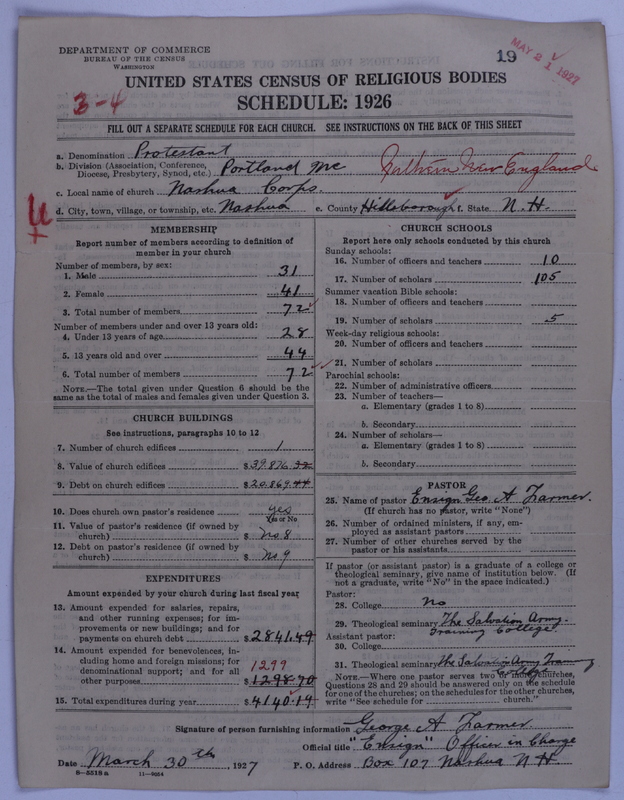 DEPARTMENT OF COMMERCE
BUREAU OF THE CENSUS
WASHINGTON
19
MAY 21 1927
UNITED STATES CENSUS OF RELIGIOUS BODIES
3-4
SCHEDULE: 1926
FILL OUT A SEPARATE SCHEDULE FOR EACH CHURCH. SEE INSTRUCTIONS ON THE BACK OF THIS SHEET
a. Denomination Protestant
b. Division (Association, Conference, Diocese, Presbytery, Synod, etc.) Portland Me Northern New England
c. Local name of church Nashua Corps.
d. City, town, village, or township, etc. Nashua e. County Hillsborough f. State N. H.
MEMBERSHIP
Report number of members according to definition of
member in your church
Number of members, by sex:
1. Male 31
2. Female 41
3. Total number of members 72
Number of members under and over 13 years old:
4. Under 13 years of age 28
5. 13 years old and over 44
6. Total number of members 72
NOTE.—The total given under Question 6 should be the
same as the total of males and females given under Question 3.
CHURCH BUILDINGS
See instructions, paragraphs 10 to 12
7. Number of church edifices 1
8. Value of church edifices $39,876.32
9. Debt on church edifices $20,869.44
10. Does church own pastor's residence yes
Yes or No
11. Value of pastor's residence (if owned by
church) $ No. 8
12. Debt on pastor's residence (if owned by
church) $ No. 9
EXPENDITURES
Amount expended by your church during last fiscal year
13. Amount expended for salaries, repairs,
and other running expenses; for im-
provements or new buildings; and for
payments on church debt $2841.49
14. Amount expended for benevolences, in-
cluding home and foreign missions; for
denominational support; and for all 1299
other purposes $1298.70
15. Total expenditures during year $4140.19
CHURCH SCHOOLS
Report here only schools conducted by this church
Sunday schools:
16. Number of officers and teachers 10
17. Number of scholars 105
Summer vacation Bible schools:
18. Number of officers and teachers
19. Number of scholars 5
Week-day religious schools:
20. Number of officers and teachers
21. Number of scholars
Parochial schools:
22. Number of administrative officers
23. Number of teachers—
a. Elementary (grades 1 to 8)
b. Secondary
24. Number of scholars—
a. Elementary (grades 1 to 8)
b. Secondary
PASTOR
25. Name of pastor Ensign Geo. A Farmer.
(If church has no pastor, write "None")
26. Number of ordained ministers, if any, em-
ployed as assistant pastors
27. Number of other churches served by the
pastor or his assistants
If pastor (or assistant pastor) is a graduate of a college or
theological seminary, give name of institution below. (If
not a graduate, write "No" in the space indicated.)
Pastor:
28. College No
29. Theological seminary The Salvation Army
Training College
Assistant pastor:
30. College
31. Theological seminary The Salvation Army Training
College
NOTE.—Where one pastor serves two or more churches,
Questions 28 and 29 should be answered only on the schedule
for one of the churches; on the schedules for the other churches,
write "See schedule for church."
Signature of person furnishing information George A Farmer
Official title "Ensign" Officer in Charge
Date March 30th, 1927 P. O. Address Box 107 Nashua N H.
8—5518a 11—9024